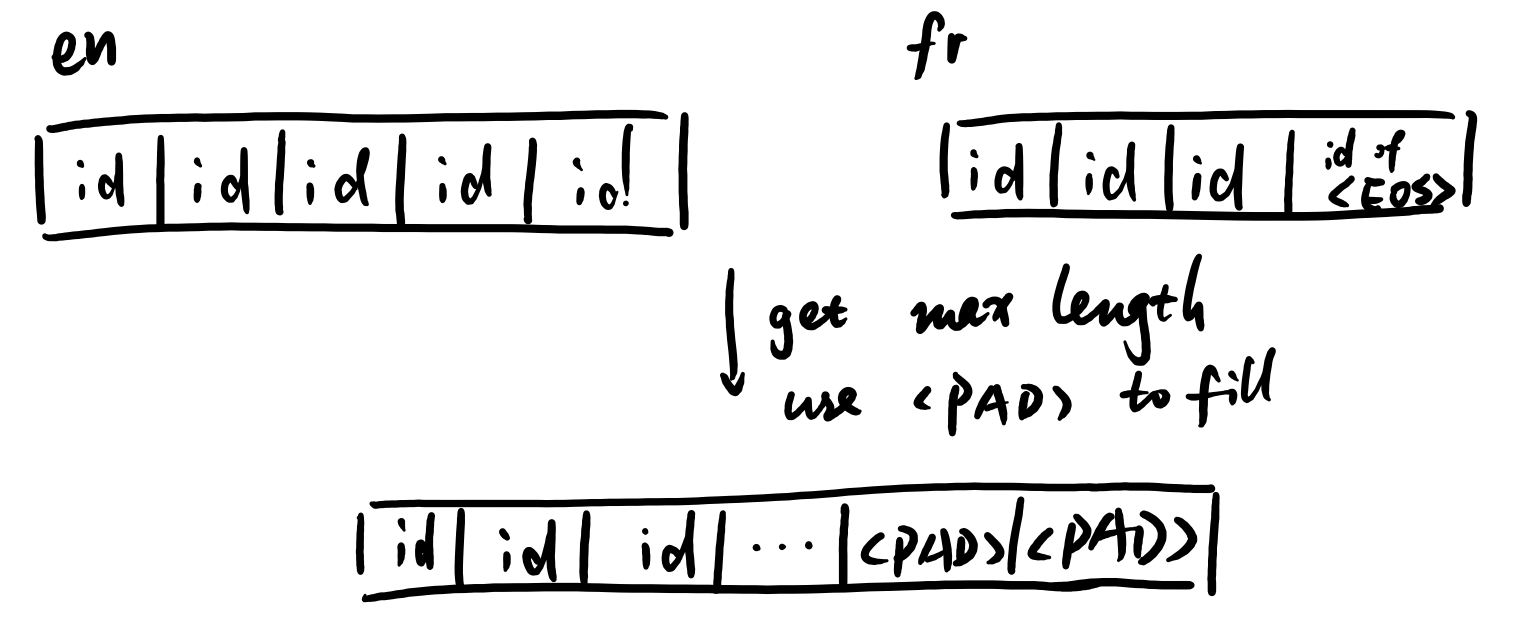 en
fr
id id id id id
id id id id of
<EOS>
get max length
use <PAD> to fill
id id id ... <PAD> <PAD>